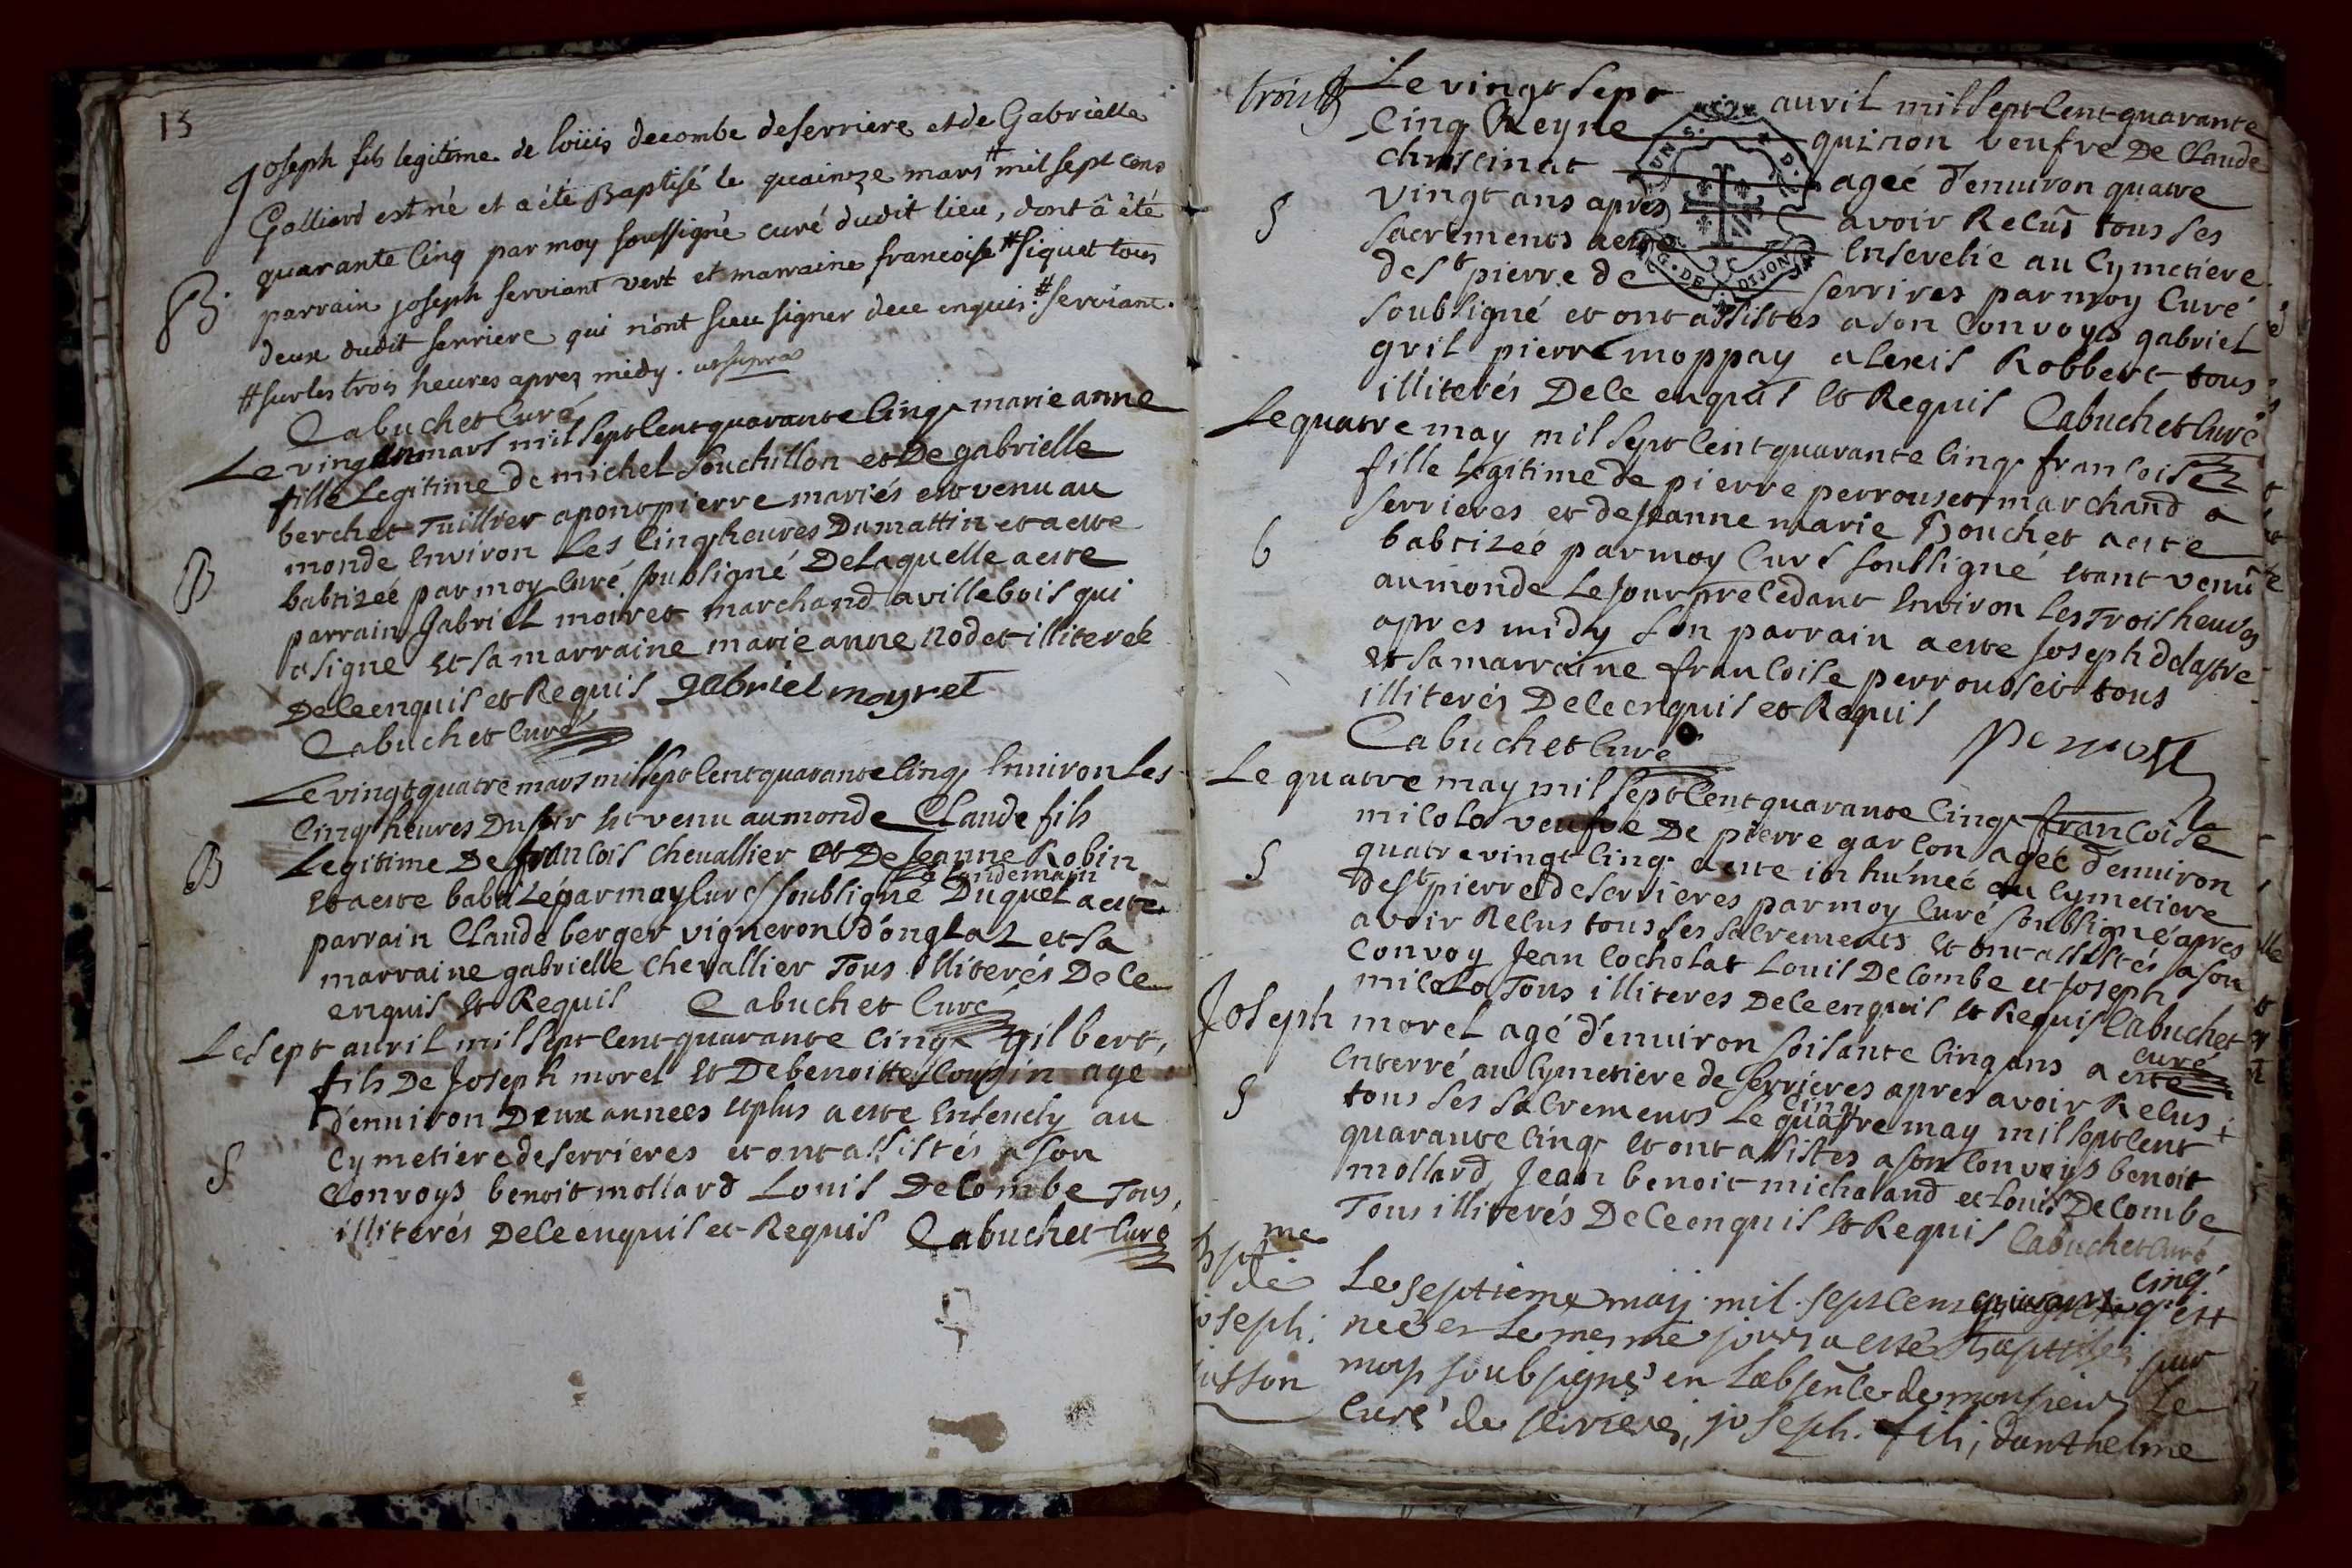 13
Joseph fils legitime de loüis decombe deserriere et de Gabrielle
Galliard est né et a été Baptisé le quainze mars # mil sept cens
quarante cinq par moy soussigné curé dudit lieu, dont â été
B
parrain joseph serviant vert et marraine francoise # siquet tous
deux dudit serriere qui n'ont sceu signer dece enquis. # serviant.
# sur les trois heures apres midy. ut supra
Cabuchet Curé
Le vingt mars mil sept Cent quarante Cinq marie anne
fille Legitime de michel souchillon et De gabrielle
berchet Tuillier a pont pierre mariés est venu au
monde Environ Les Cinq heures Du mattin et a este
B
babtizeé par moy Curé soubsigné De Laquelle a este
parrain Gabriel moiret marchand a villebois qui
a signé et sa marraine marie anne nodet illiterée
De ce enquis et Requis gabriel moyret
Cabuchet Curé
Le vingt quatre mars mil sept Cent quarante Cinq Environ Les
Cinq heures Du soir est venu au monde Claude fils
B
Legitime De francois chevallier et De Jeanne Robin
Le Landemain
et a este babtizé par moy Curé soubsigné Duquel a este
parrain Claude berger vigneron d'onglaz et sa
marraine gabrielle chevallier Tous illiterés De ce
enquis et Requis Cabuchet Curé
Le sept avril mil sept Cent quarante Cinq gilbert,
fils De Joseph morel et De benoitte Cousin age
d'environ Deux annees et plus a este Ensevely au
S
Cymetiere de serrieres et ont assistés a son
Convoys benoit mollard Louis De Combe Tous,
illiterés De ce enquis et Requis Cabuchet Curé
trois
Le vingt sept avril mil sept Cent quarante
Cinq Reyne quinon veufve De Claude
agée d'environ quatre
S
vingt ans apres avoir Recus tous ses
sacrements a este Ensevelie au Cymetiere
de St pierre de serrires par moy Curé
soubsigné et ont assistes a son Convoys gabriel
gril pierre moppay alexis Robbert tous
illiterés De ce enquis et Requis Cabuchet Curé
Le quatre may mil sept Cent quarante Cinq francoise
fille Legitime de pierre perrousset marchand a
serrieres et de Jeanne marie Bouchet a este
b
babtizeé par moy Curé soubsigné etant venu
au monde Le jour precedant Environ Les Trois heures
apres midy son parrain a este Joseph delastre
et sa marraine francoise perrousset tous
illiterés De ce enquis et Requis
Cabuchet Curé
Le quatre may mil sept Cent quarante Cinq francoise
milolo veufve De pierre garcon ageé d'environ
S
quatre vingt Cinq a este inhumeé au Cymetiere
de St pierre de serrieres par moy Curé soubsigné apres
avoir Recus tous ses sacrements et ont assistés a son
Convoy Jean Cocholat Louis De Combe et Joseph
milolo Tous illiteres De ce enquis et Requis Cabuchet
curé
Joseph morel agé d'environ soisante Cinq ans a este
Enterré au Cymetiere de serrieres apres avoir Recus
S
cinq
tous ses sacrements Le quattre may mil sept Cent
quarante Cinq et ont assistes a son Convoys benoit
mollard Jean benoit michaland et Louis De Combe
Tous illiterés De ce enquis et Requis Cabuchet Curé
me
de
oseph
Le septieme may mil sept cens quarante cinq est
né et le mesme jour a esté baptisé par
moy soubsigné en Labsence de monsieur Le
Curé de serrieres, joseph fils danthelme
UN S.
G. DE DIJON